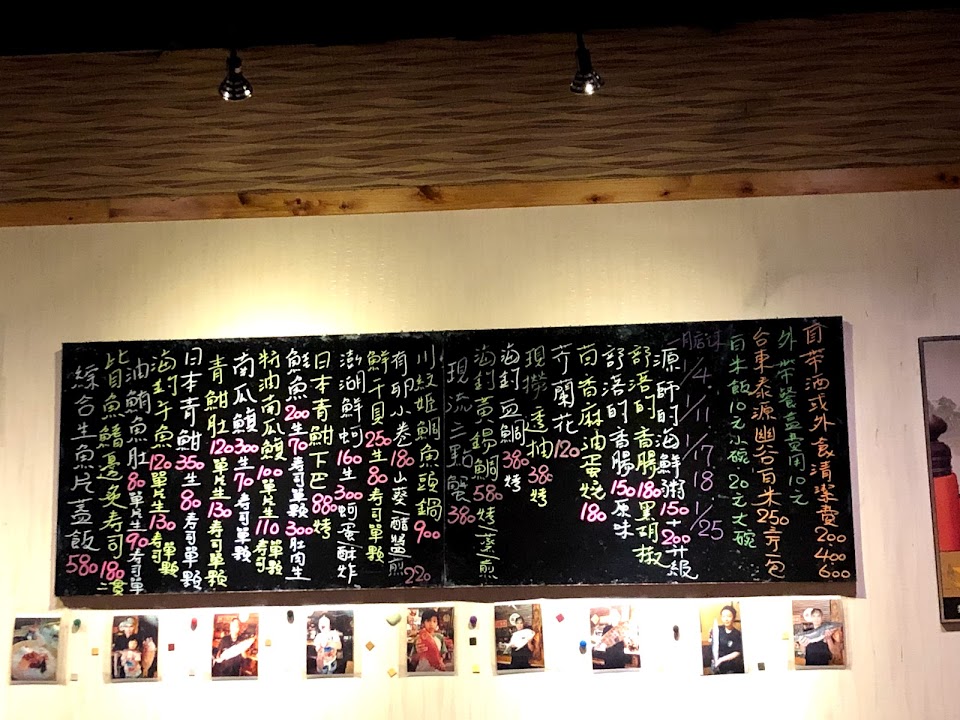 自帶酒或外食清潔費200 400 600
外帶餐盒費用10元
台東泰源幽谷白米250元一包
白米飯10元小碗 20元大碗
1/4 1/11 1/17 1/18 1/25
源師的海鮮粥150+200升級
部落的香腸180黑胡椒
部落的香腸150原味
茴香麻油蛋燒180
芥蘭花120
現撈透抽380烤
海釣血鯛380烤
海釣黃錫鯛580烤/蒸/煎
現流三點蟹380
川紋姬鯛魚頭鍋900
有卵小卷180山葵/醋鹽/煎220
鮮干貝250生80壽司單顆
澎湖鮮蚵160生300蚵蛋酥炸
日本青魽下巴880烤
鮭魚200生70壽司單顆300肚肉生
特油南瓜鰻100單片生110壽司單顆
南瓜鰻300生70壽司單顆
青魽肚120單片生130壽司單顆
日本青魽350生80壽司單顆
海釣午魚120單片生130單顆壽司
油鯛魚肚80單片生90壽司單顆
比目魚鰭邊炙壽司180二貫
綜合生魚片蓋飯580